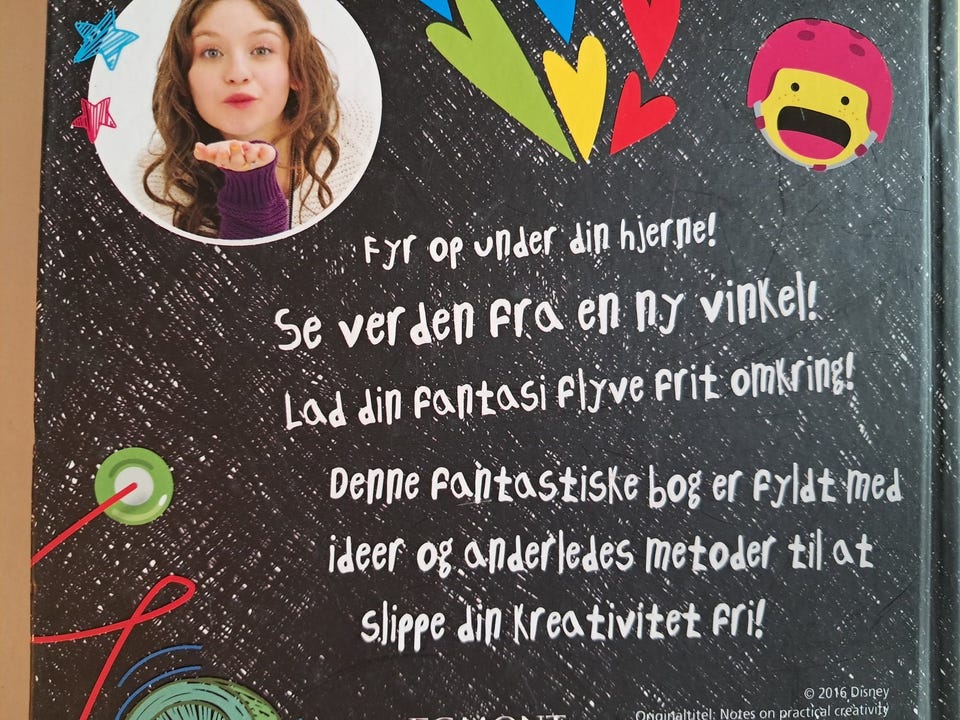 Fyr op under din hjerne!
Se verden fra en ny vinkel!
Lad din fantasi flyve frit omkring!
Denne fantastiske bog er fyldt med
ideer og anderledes metoder til at
slippe din kreativitet fri!
© 2016 Disney
Originaltitel: Notes on practical creativity
EGMONT